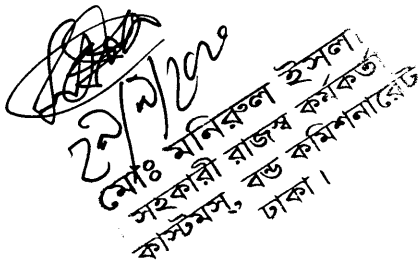 মোঃ মনিরুল ইসল
সহকারী রাজস্ব কর্মকর্তা
কাস্টমস্, বন্ড কমিশনারেট
ঢাকা।